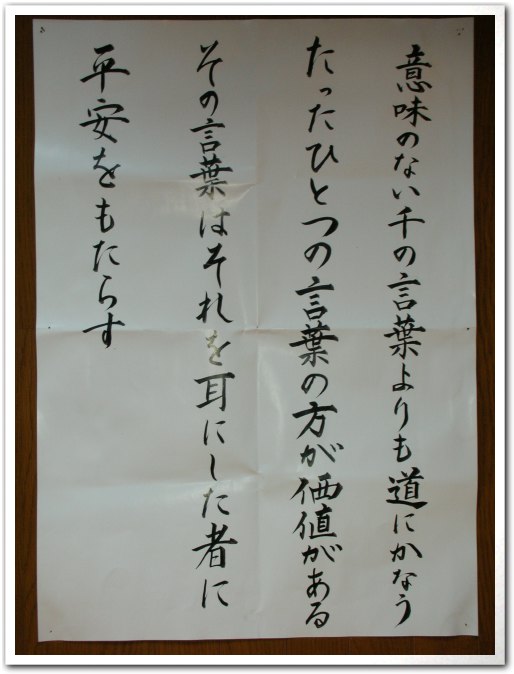 意味のない千の言葉よりも道にかなう
たったひとつの言葉の方が価値がある
その言葉はそれを耳にした者に
平安をもたらす